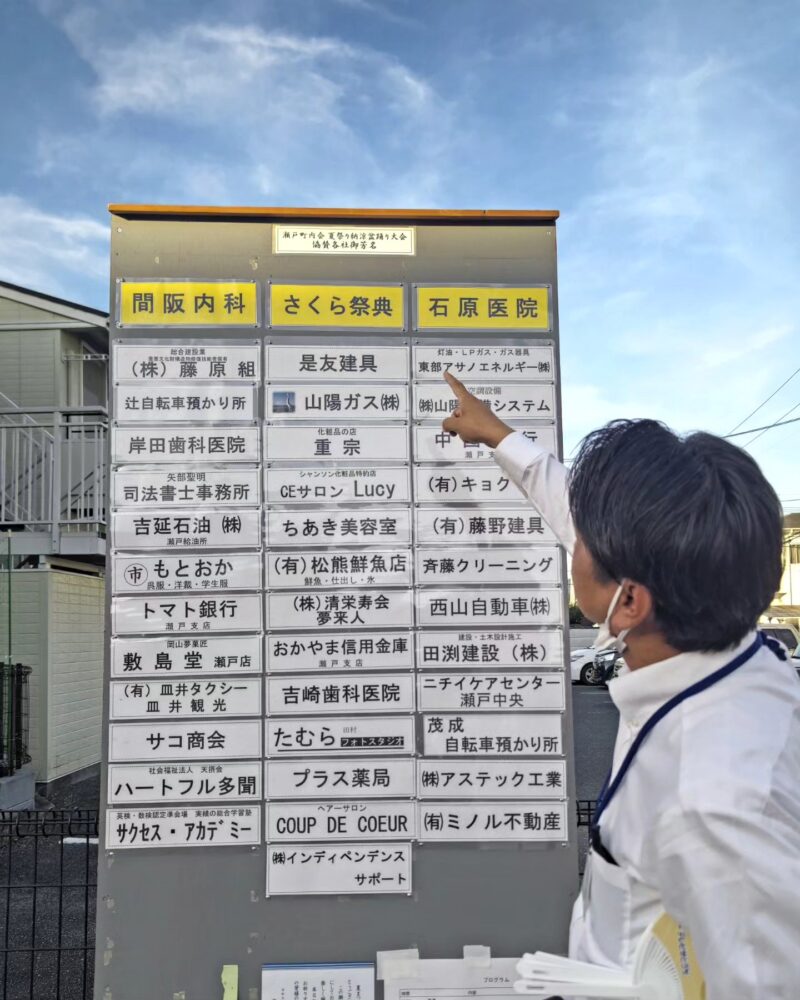 瀬戸町内会 夏祭り納涼盆踊り大会
協賛各社御芳名
間阪内科
総合建設業
(株) 藤原組
辻自転車預かり所
岸田歯科医院
矢部聖明
司法書士事務所
吉延石油 ㈱
瀬戸給油所
市 もとおか
呉服・洋裁・学生服
トマト銀行
瀬戸支店
岡山夢菓匠
敷島堂 瀬戸店
(有) 皿井タクシー
皿井観光
サコ商会
社会福祉法人 天摂会
ハートフル多聞
英検・数検認定準会場 実績の総合学習塾
サクセス・アカデミー
さくら祭典
是友建具
山陽ガス㈱
化粧品の店
重宗
シャンソン化粧品特約店
CEサロン Lucy
ちあき美容室
(有) 松熊鮮魚店
鮮魚・仕出し・氷
(株) 清栄寿会
夢来人
おかやま信用金庫
瀬戸支店
吉崎歯科医院
たむら 田村
フォトスタジオ
プラス薬局
ヘアーサロン
COUP DE COEUR
㈱インディペンデンス
サポート
石原医院
灯油・LPガス・ガス器具
東部アサノエネルギー㈱
空調設備
㈱山陽 システム
中 行
瀬戸支
(有) キョク
(有) 藤野建具
斉藤クリーニング
西山自動車㈱
建設・土木設計施工
田渕建設 (株)
ニチイケアセンター
瀬戸中央
茂成
自転車預かり所
㈱アステック工業
(有) ミノル不動産
プログラム
時間
内容